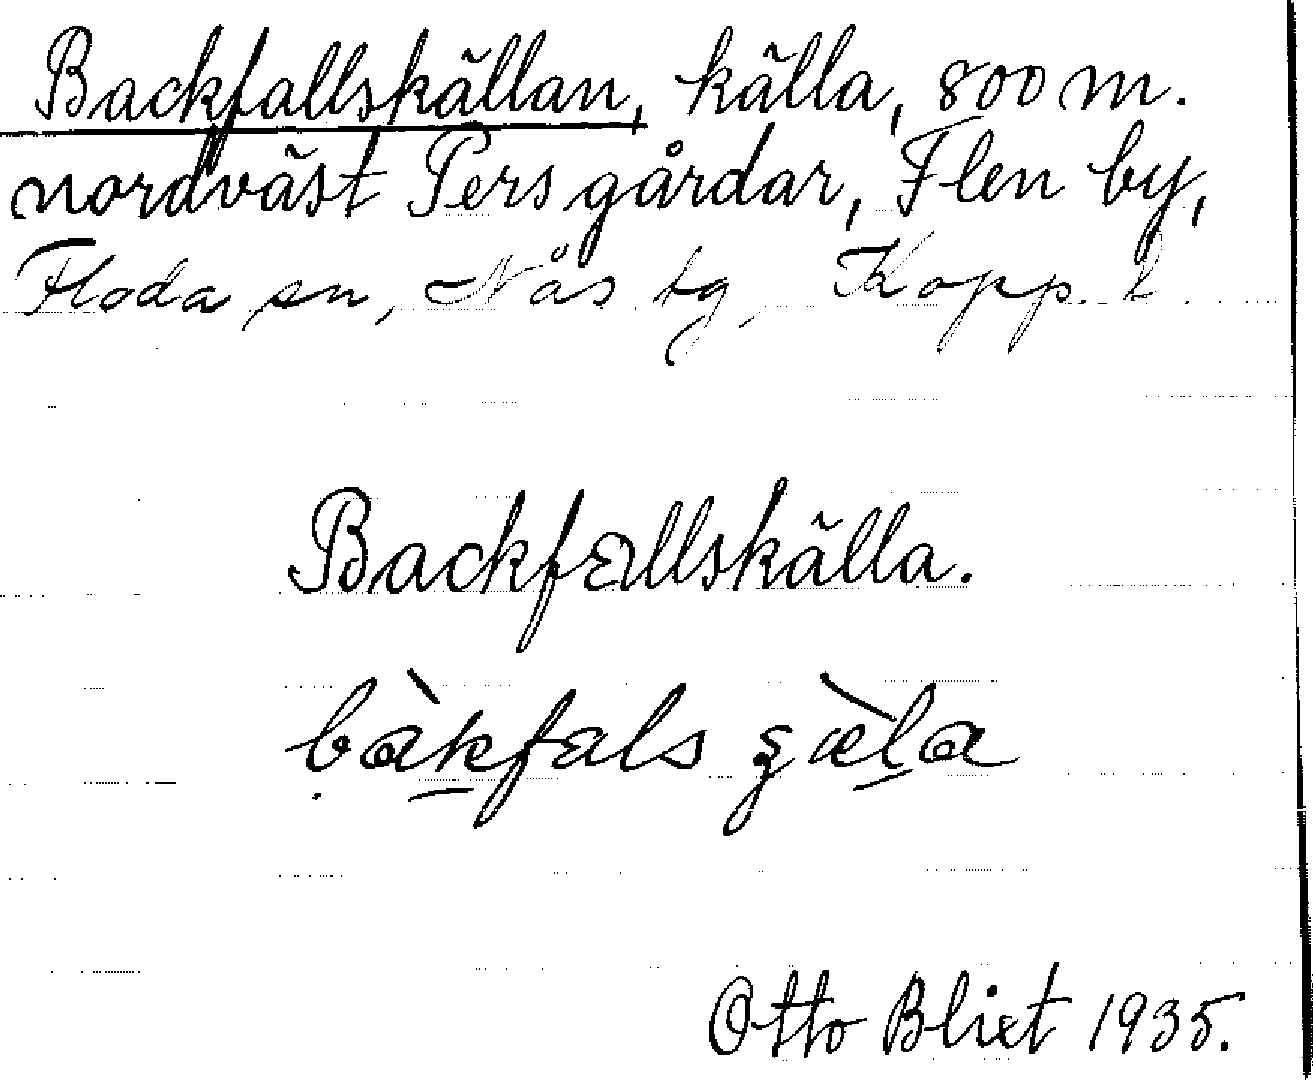 Backfallskällan, källa, 800 m.
nordväst Pers gårdar, Flen by,
Floda sn, Nås tg, Kopp. l.
Backfallskälla.
bàkfals gæ̀la
Otto Blixt 1935.